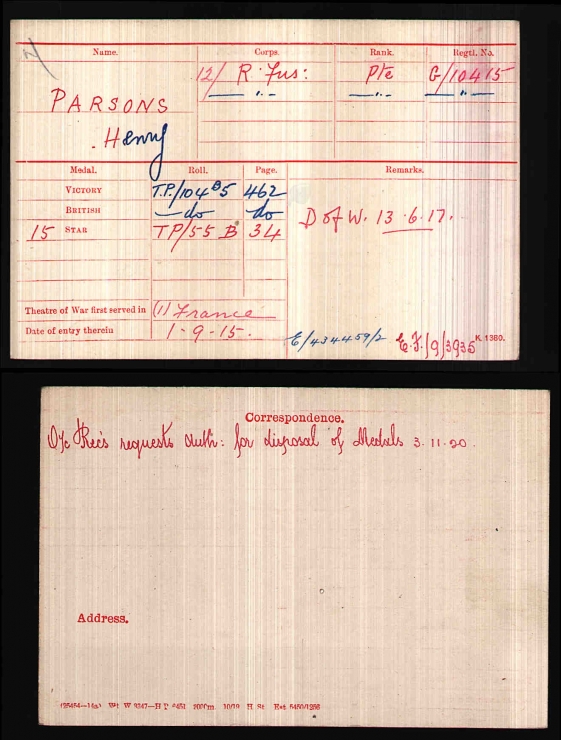 Name. Corps. Rank. Regtl. No.
12/ R. Fus: Pte G/10415
PARSONS — " — — " — — " —
Henry
Medal. Roll. Page. Remarks.
VICTORY T.P./104 B5 462
BRITISH — do do
D of W. 13.6.17.
15 STAR TP/55 B 34
Theatre of War first served in (1) France
Date of entry therein 1-9-15.
E/434459/2 E.F./9/3935 K. 1380.
Correspondence.
O/c Rec's requests auth: for disposal of Medals 3.11.20.
Address.
Wt W 9347—H P 6451 10/19 H St